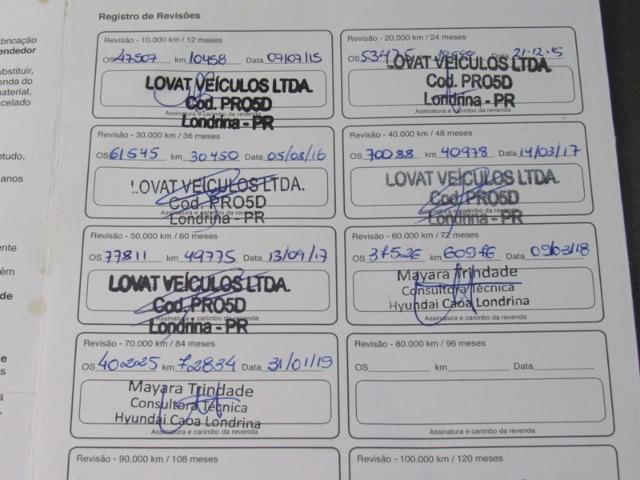 Registro de Revisões
bricação
endedor
Revisão - 10.000 km / 12 meses
OS 47507 km 10458 Data 07/07/15
LOVAT VEÍCULOS LTDA.
Cod. PRO5D
Assinatura e carimbo da revenda
Londrina - PR
Revisão - 20.000 km / 24 meses
OS 53475 km Data 21-12-15
LOVAT VEÍCULOS LTDA.
Cod. PRO5D
Londrina - PR
Assinatura e carimbo da revenda
ubstituir,
enda do
aterial,
celado
Revisão - 30.000 km / 36 meses
OS 61545 km 30450 Data 05/08/16
LOVAT VEÍCULOS LTDA.
Cod. PRO5D
Assinatura e carimbo da revenda
Londrina - PR
Revisão - 40.000 km / 48 meses
OS 70088 km 40978 Data 14/03/17
LOVAT VEÍCULOS LTDA.
Cod. PRO5D
Assinatura e carimbo da revenda
Londrina - PR
ntudo,
anos
Revisão - 50.000 km / 60 meses
OS 77811 km 49775 Data 13/09/17
LOVAT VEÍCULOS LTDA.
Cod. PRO5D
Assinatura e carimbo da revenda
Londrina - PR
Revisão - 60.000 km / 72 meses
OS 37526 km 60976 Data 09/03/18
Mayara Trindade
Consultora Técnica
Hyundai Caoa Londrina
Assinatura e carimbo da revenda
ente
ém
de
Revisão - 70.000 km / 84 meses
OS 40225 km 72834 Data 31/01/19
Mayara Trindade
Consultora Técnica
Hyundai Caoa Londrina
Assinatura e carimbo da revenda
Revisão - 80.000 km / 96 meses
OS km Data
Assinatura e carimbo da revenda
e
s
a
Revisão - 90.000 km / 108 meses
Revisão - 100.000 km / 120 meses